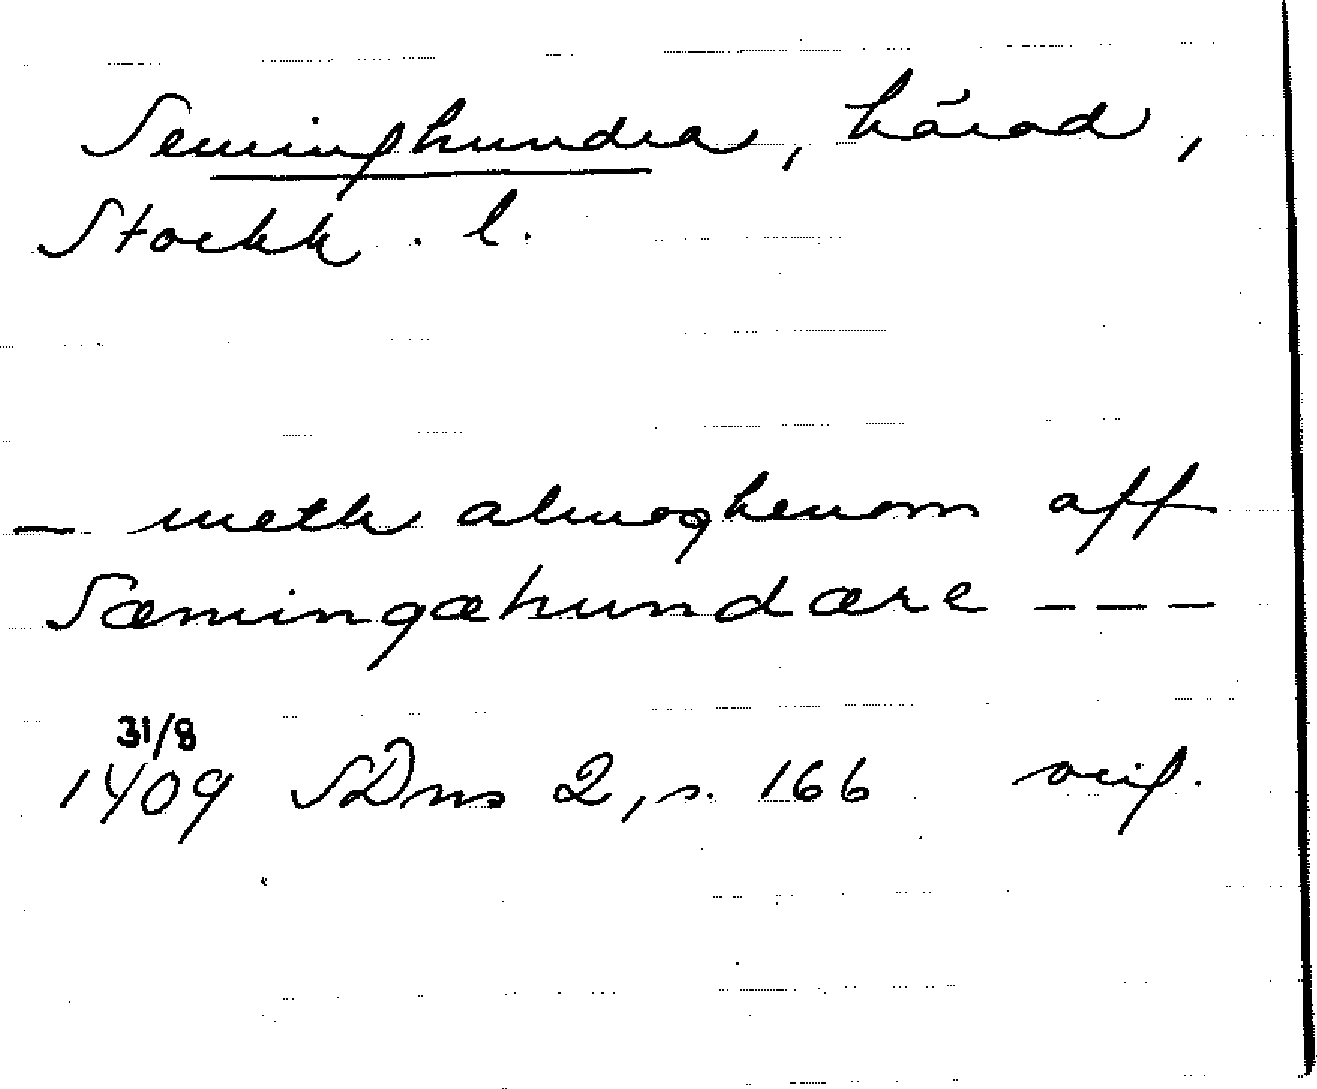 Seminghundra, härad,
Stockh. l.
— meth almoghenom aff
Sæmingæhundære ---
31/8
1409 SDns 2, s. 166 orig.